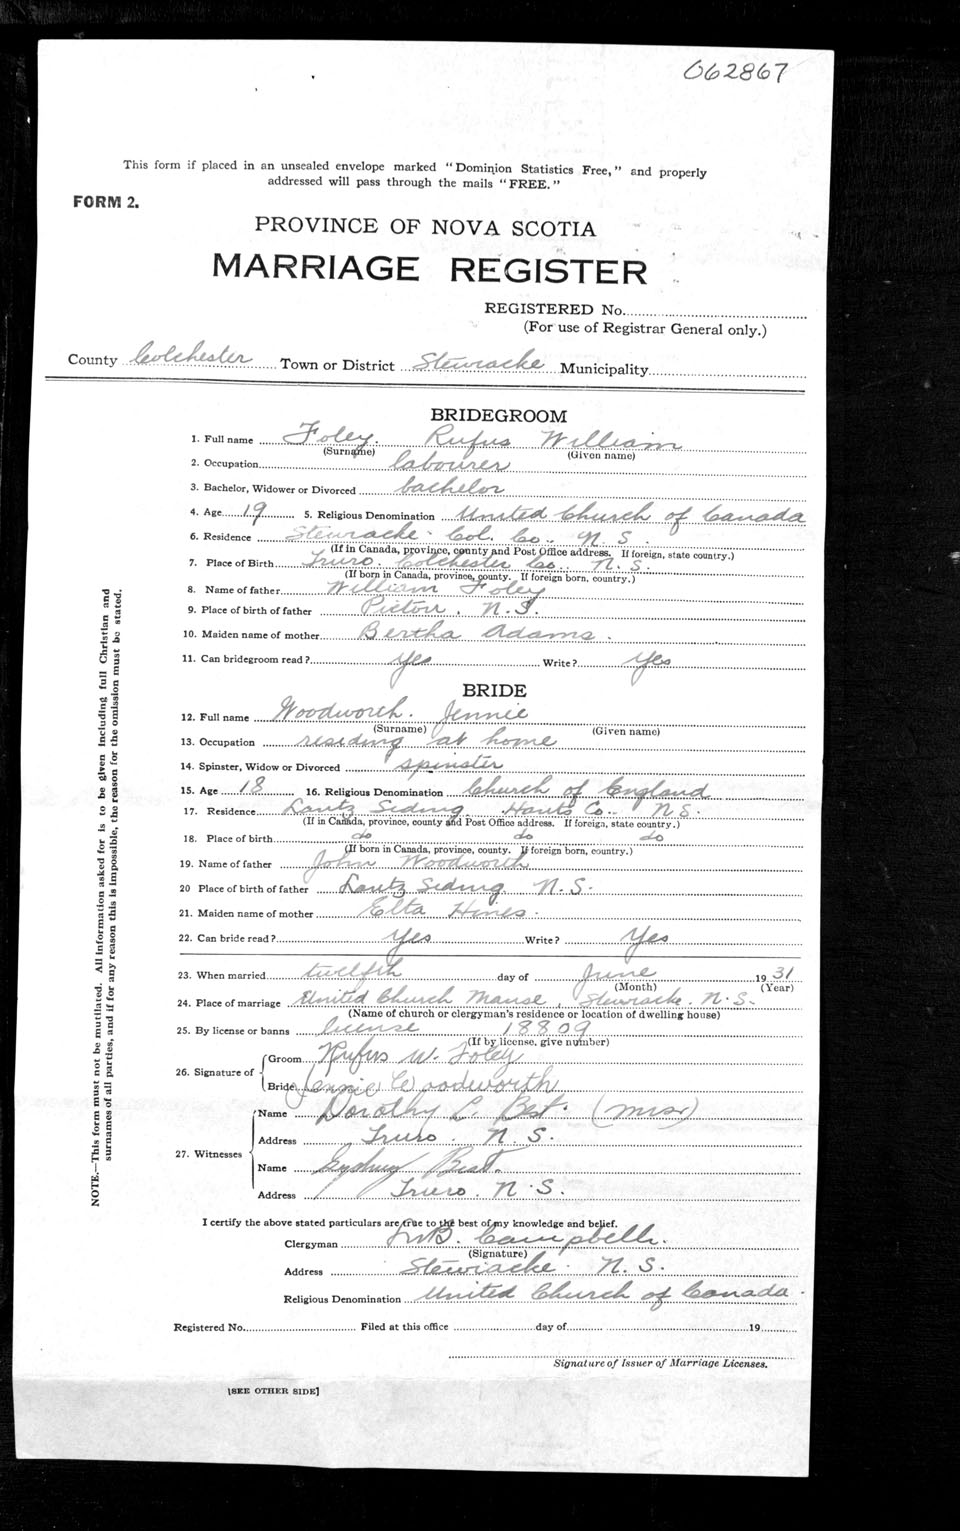 062867
This form if placed in an unsealed envelope marked "Dominion Statistics Free," and properly
addressed will pass through the mails "FREE."
FORM 2.
PROVINCE OF NOVA SCOTIA
MARRIAGE REGISTER
REGISTERED No.
(For use of Registrar General only.)
County Colchester Town or District Stewiacke Municipality
BRIDEGROOM
1. Full name Foley. Rufus William
(Surname) (Given name)
2. Occupation labourer
3. Bachelor, Widower or Divorced bachelor
4. Age 19 5. Religious Denomination United Church of Canada
6. Residence Stewiacke Col. Co. N.S.
(If in Canada, province, county and Post Office address. If foreign, state country.)
7. Place of Birth Truro. Colchester Co. N.S.
(If born in Canada, province, county. If foreign born, country.)
8. Name of father William Foley
9. Place of birth of father Pictou. N.S.
10. Maiden name of mother Bertha Adams.
11. Can bridegroom read? yes Write? yes
BRIDE
12. Full name Woodworth. Jennie
(Surname) (Given name)
13. Occupation residing at home
14. Spinster, Widow or Divorced spinster
15. Age 18 16. Religious Denomination Church of England
17. Residence Lantz Siding. Hants Co. N.S.
(If in Canada, province, county and Post Office address. If foreign, state country.)
18. Place of birth do do do
(If born in Canada, province, county. If foreign born, country.)
19. Name of father John Woodworth
20 Place of birth of father Lantz Siding. N.S.
21. Maiden name of mother Elta Hines.
22. Can bride read? Yes Write? Yes
23. When married twelfth day of June 1931
(Month) (Year)
24. Place of marriage United Church Manse, Stewiacke. N.S.
(Name of church or clergyman's residence or location of dwelling house)
25. By license or banns license 18809
(If by license, give number)
26. Signature of Groom Rufus W. Foley
Bride Jennie Woodworth
27. Witnesses Name Dorothy L. Best. (Mrs)
Address Truro. N.S.
Name Sydney Best.
Address Truro. N.S.
I certify the above stated particulars are true to the best of my knowledge and belief.
Clergyman Campbell.
(Signature)
Address Stewiacke. N.S.
Religious Denomination United Church of Canada.
Registered No. Filed at this office day of 19
Signature of Issuer of Marriage Licenses.
[SEE OTHER SIDE]
NOTE.—This form must not be mutilated. All information asked for is to be given including full Christian and
surnames of all parties, and if for any reason this is impossible, the reason for the omission must be stated.